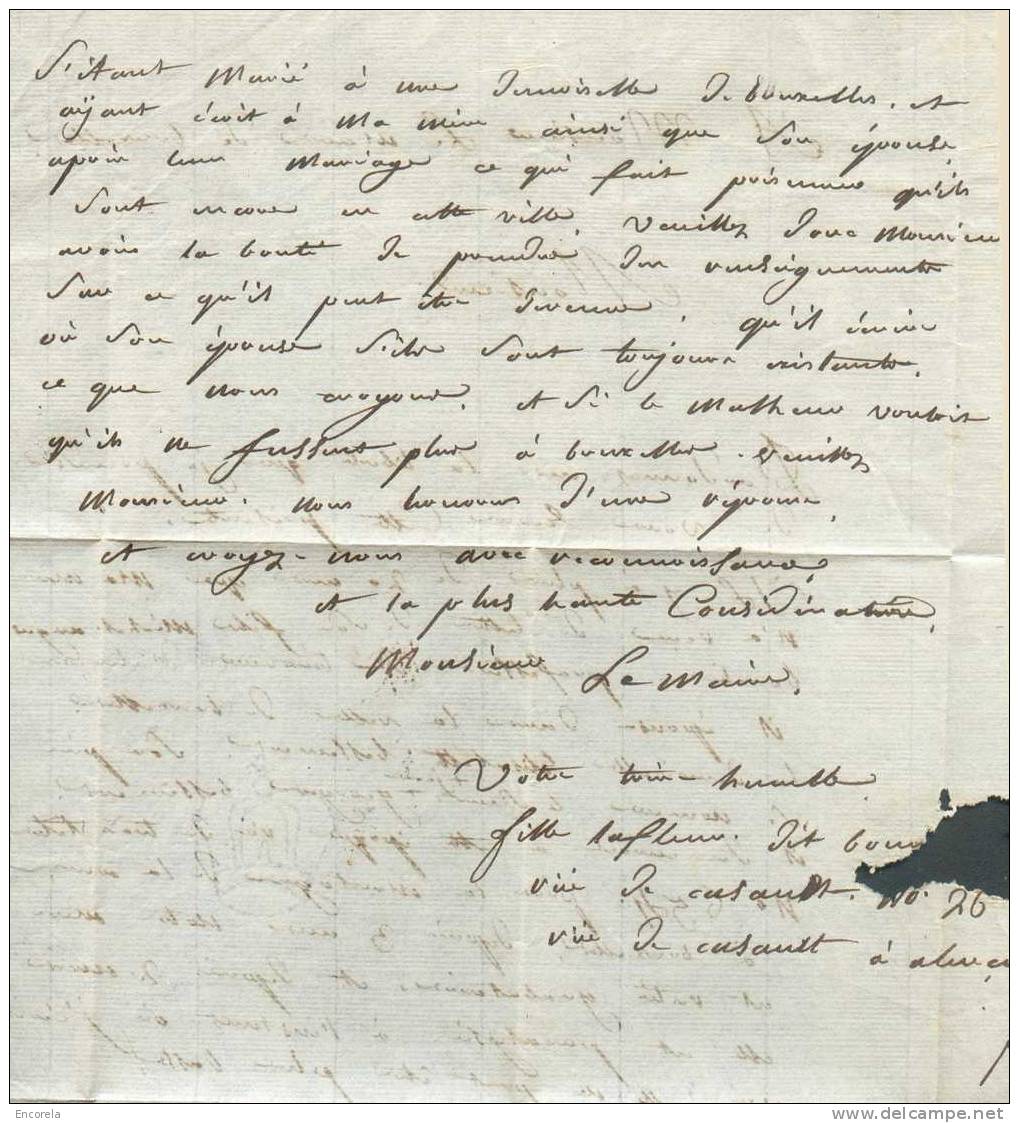 S'étant Marié à une demoiselle de bruxelles. et
ayant écrit à Ma Mère ainsi que son épouse
après leur Mariage ce qui fait présumer qu'ils
sont encore en cette ville, veuillez donc Monsieur
avoir la bonté de prendre des renseignements
sur ce qu'il peut être devenu, qu'il écrive
où son épouse s'ils sont toujours existants.
ce que nous croyons. et si le Malheur vouloit
qu'ils ne fussent plus à bruxelles. veuillez
Monsieur. nous honorer d'une réponse,
et croyez-nous avec reconnoissance,
et la plus haute Considération,
Monsieur Le Maire,
Votre très humble
fille lafleur. dit
rüe de casault. No. 26
rüe de casault à
Encorela
www.delcampe.net